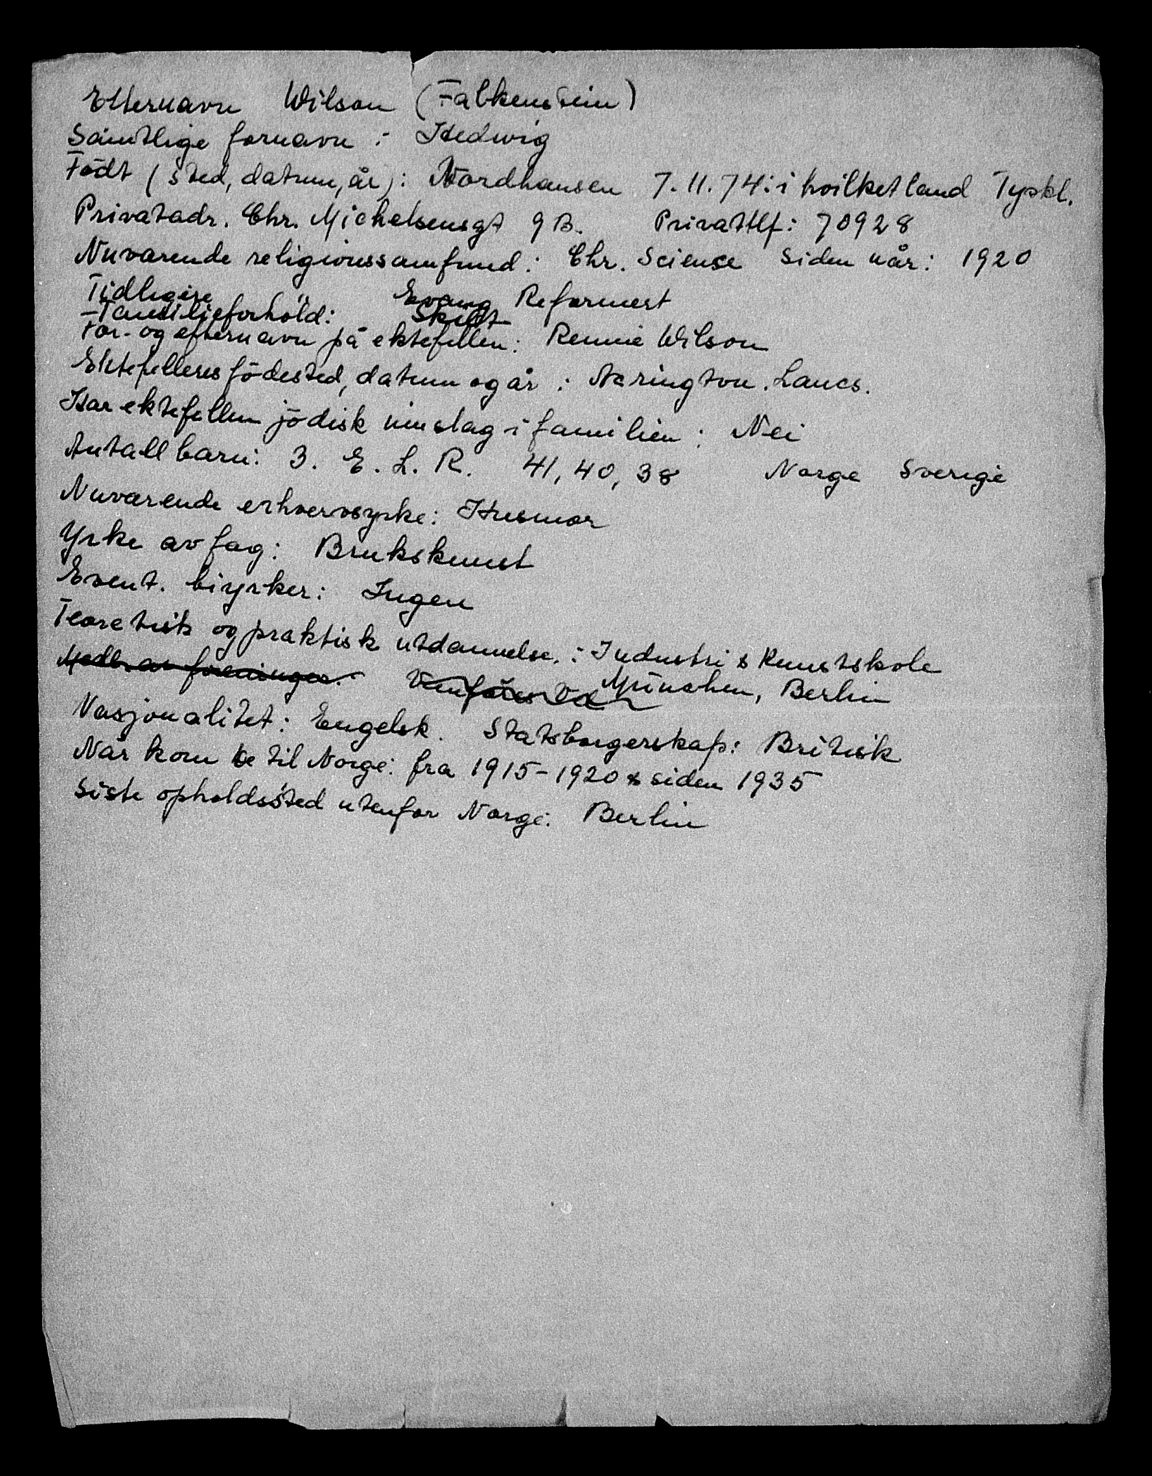 Etternavn Wilson (Falkenstein)
Samtlige fornavn : Hedwig
Födt (sted, datum, år): Nordhausen 7.11.74: i hvilket land Tyskl.
Privatadr. Chr. Michelsensgt 9 B. Privattlf: 70928
Nuvärende religionssamfund: Chr. Science Siden når: 1920
Tidligere Evang Reformert
Familieforhold: Skilt
For- og efternavn på ektefellen: Rennie Wilson
Ektefellens födested, datum og år : Acrington. Lancs.
Har ektefellen jödisk innslag i familien : Nei
Antall barn: 3. E. L. R. 41, 40, 38 Norge Sverige
Nuvärende erhvervsyrke: Husmor
Yrke av fag: Brukskunst
Event. biyrker: Ingen
Teoretisk og praktisk utdannelse. : Industri & Kunstskole
Medl. av foreninger.
München, Berlin
Nasjonalitet: Engelsk. Statsborgerskap: Britisk
Når kom De til Norge: fra 1915-1920 & siden 1935
Siste opholdssted utenfor Norge: Berlin